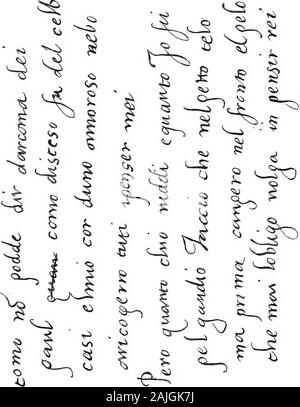 como nō podde dir darcoma dei
paul como disceso fu del cello
casi elmio cor duno amoroso nelo
tuti ipenser mei
Pero quanto chio niddi e quanto Jo fui
pel gaudio Jaccio che nel petto celo
ma prima cangero nel fronto el pelo
che mai lobligo nolga in pensir rei
2AJGK7J